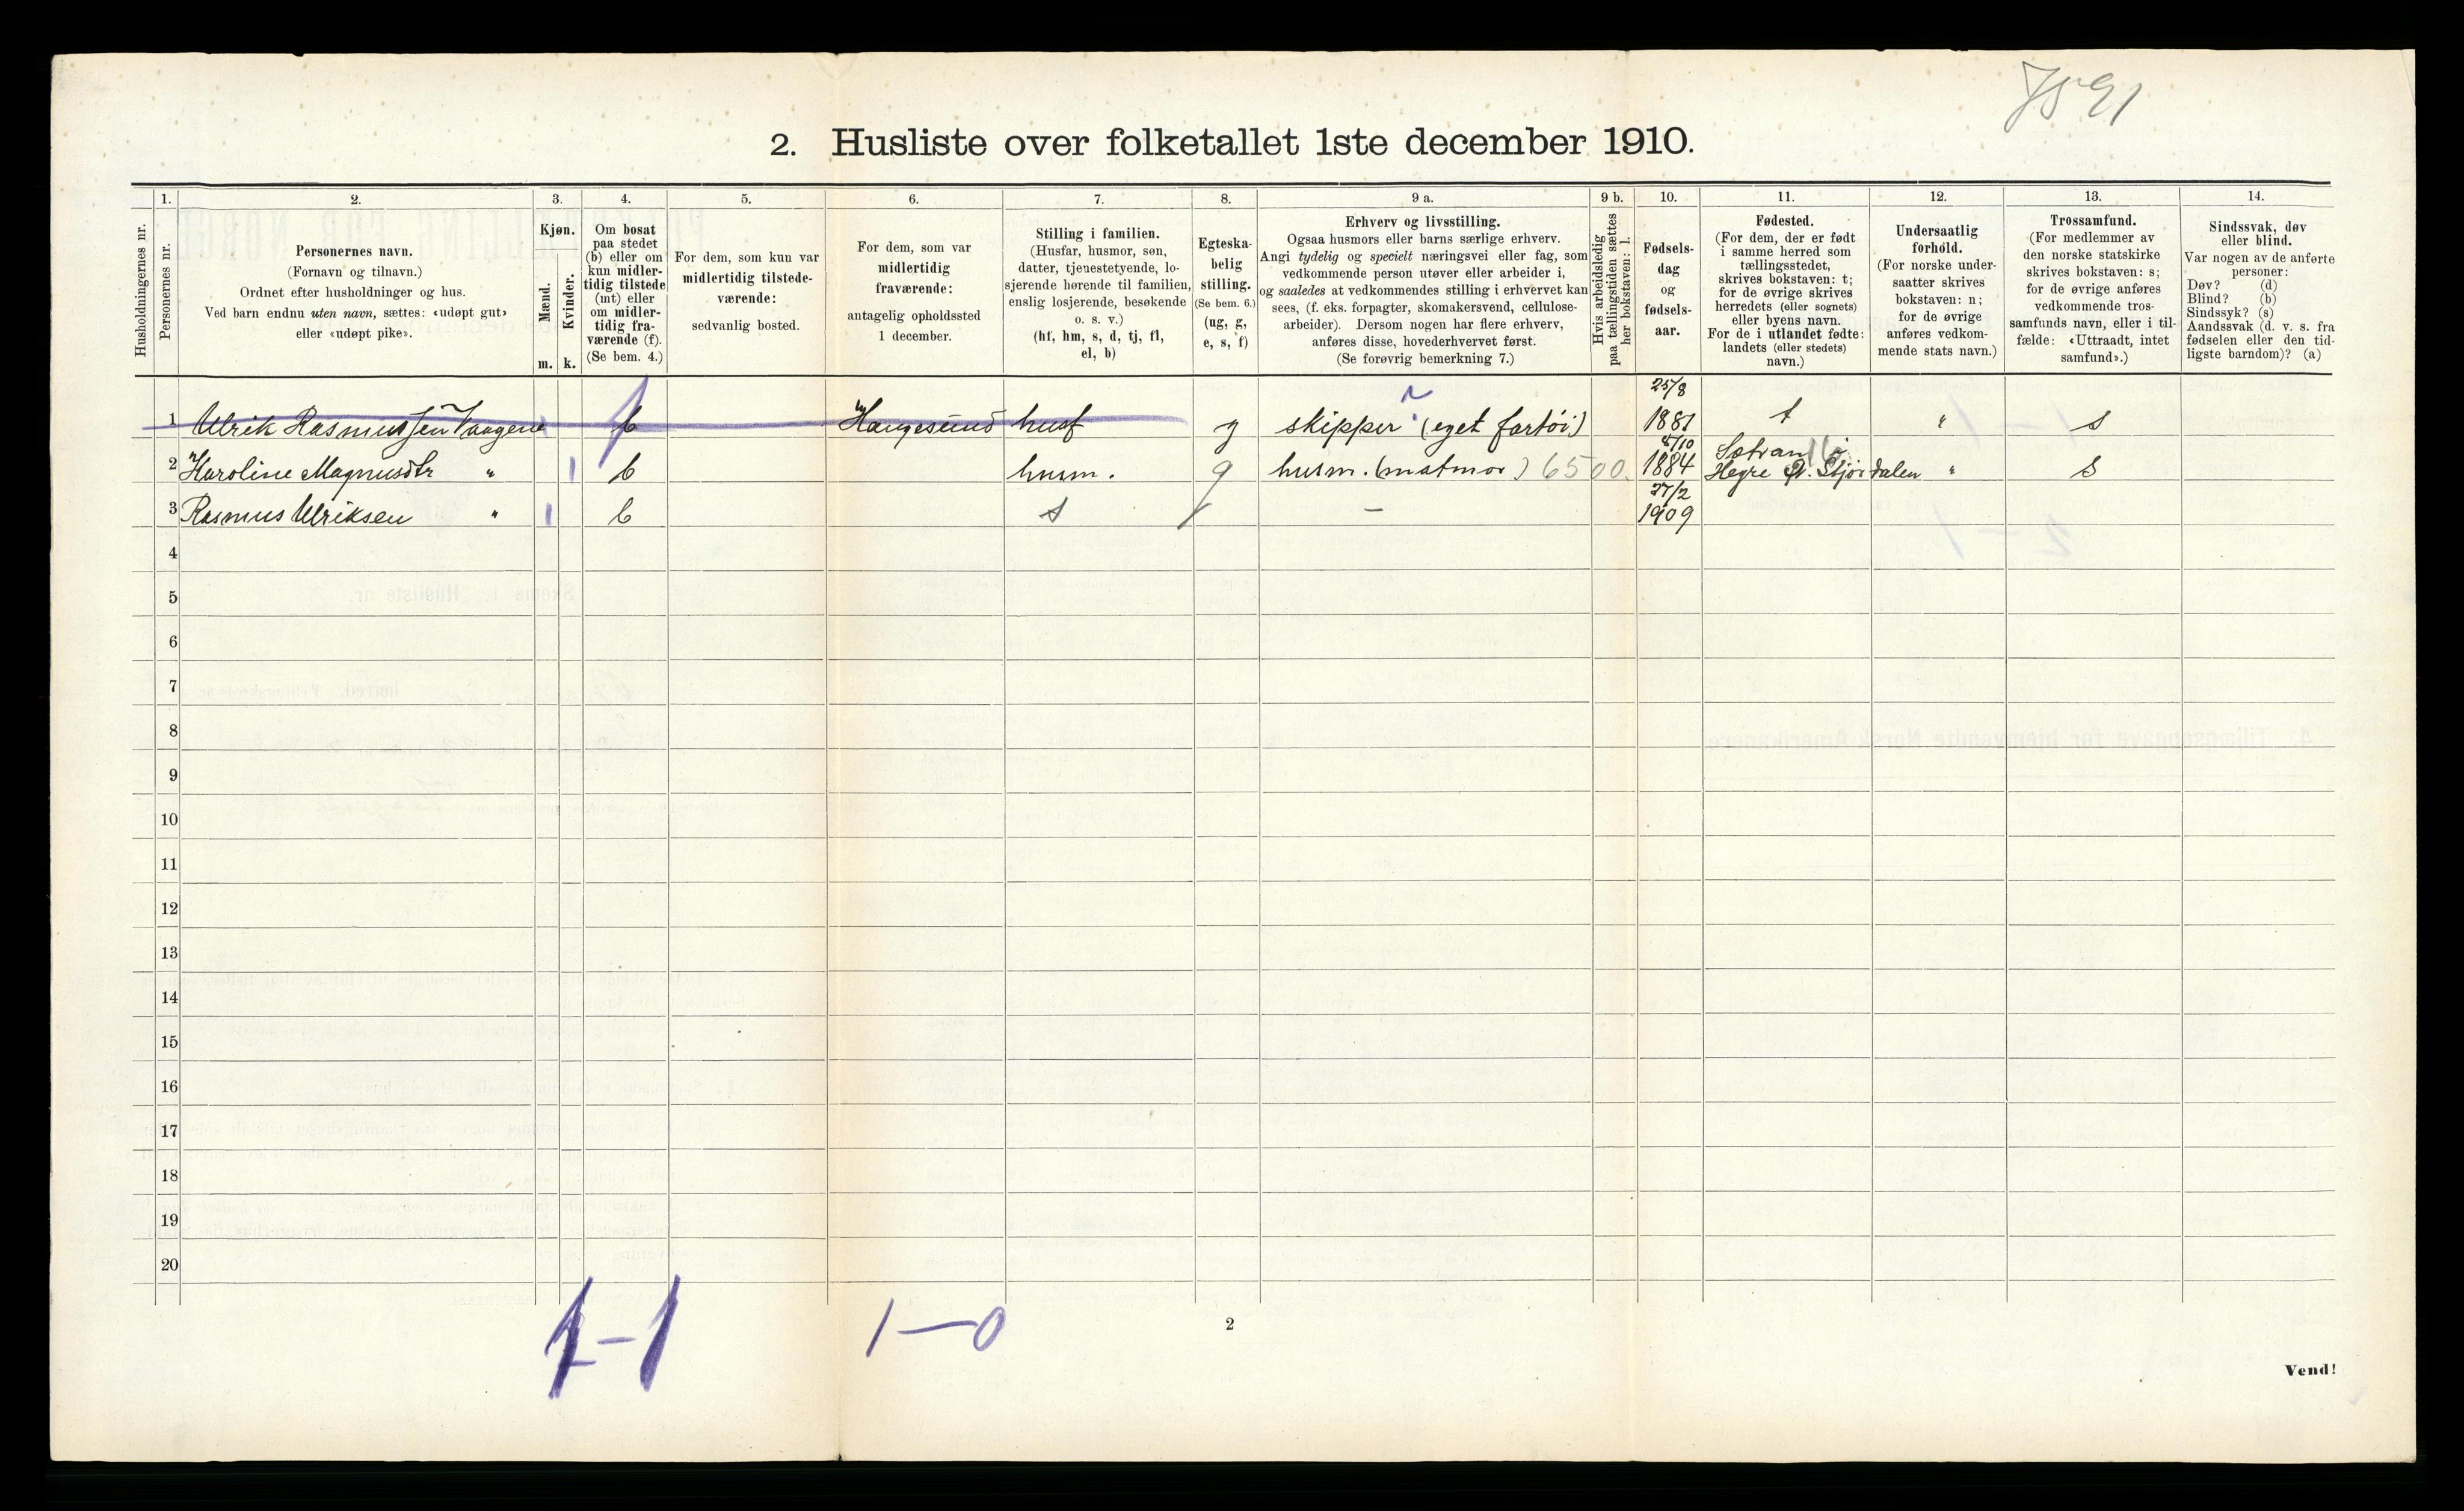 7591
2. Husliste over folketallet 1ste december 1910.
1. 2. 3. 4. 5. 6. 7. 8. 9 a. 9 b. 10. 11. 12. 13. 14.
Husholdningernes nr.
Personernes nr.
Personernes navn.
(Fornavn og tilnavn.)
Ordnet efter husholdninger og hus.
Ved barn endnu uten navn, sættes: «udøpt gut»
eller «udøpt pike».
Kjøn.
Mænd.
Kvinder.
m. k.
Om bosat
paa stedet
(b) eller om
kun midler-
tidig tilstede
(mt) eller
om midler-
tidig fra-
værende (f).
(Se bem. 4.)
For dem, som kun var
midlertidig tilstede-
værende:
sedvanlig bosted.
For dem, som var
midlertidig
fraværende:
antagelig opholdssted
1 december.
Stilling i familien.
(Husfar, husmor, søn,
datter, tjenestetyende, lo-
sjerende hørende til familien,
enslig losjerende, besøkende
o. s. v.)
(hf, hm, s, d, tj, fl,
el, b)
Egteska-
belig
stilling.
(Se bem. 6.)
(ug, g,
e, s, f)
Erhverv og livsstilling.
Ogsaa husmors eller barns særlige erhverv.
Angi tydelig og specielt næringsvei eller fag, som
vedkommende person utøver eller arbeider i,
og saaledes at vedkommendes stilling i erhvervet kan
sees, (f. eks. forpagter, skomakersvend, cellulose-
arbeider). Dersom nogen har flere erhverv,
anføres disse, hovederhvervet først.
(Se forøvrig bemerkning 7.)
Hvis arbeidsledig
paa tællingstiden sættes
her bokstaven: l.
Fødsels-
dag
og
fødsels-
aar.
Fødested.
(For dem, der er født
i samme herred som
tællingsstedet,
skrives bokstaven: t;
for de øvrige skrives
herredets (eller sognets)
eller byens navn.
For de i utlandet fødte:
landets (eller stedets)
navn.)
Undersaatlig
forhold.
(For norske under-
saatter skrives
bokstaven: n;
for de øvrige
anføres vedkom-
mende stats navn.)
Trossamfund.
(For medlemmer av
den norske statskirke
skrives bokstaven: s;
for de øvrige anføres
vedkommende tros-
samfunds navn, eller i til-
fælde: «Uttraadt, intet
samfund».)
Sindssvak, døv
eller blind.
Var nogen av de anførte
personer:
Døv? (d)
Blind? (b)
Sindssyk? (s)
Aandssvak (d. v. s. fra
fødselen eller den tid-
ligste barndom)? (a)
25/8
1 Ulrik Rasmussen Vaagene b Haugesund husf g skipper (eget fartøi) 1881 t " s
5/10
2 Karoline Magnusdtr " 1 b husm. g husm. (matmor) 6500. 1884 Hegre N. Stjørdalen " s
27/2
3 Rasmus Ulriksen " 1 b s - 1909
4
5
6
7
8
9
10
11
12
13
14
15
16
17
18
19
20
1-1 1-0
2
Vend!